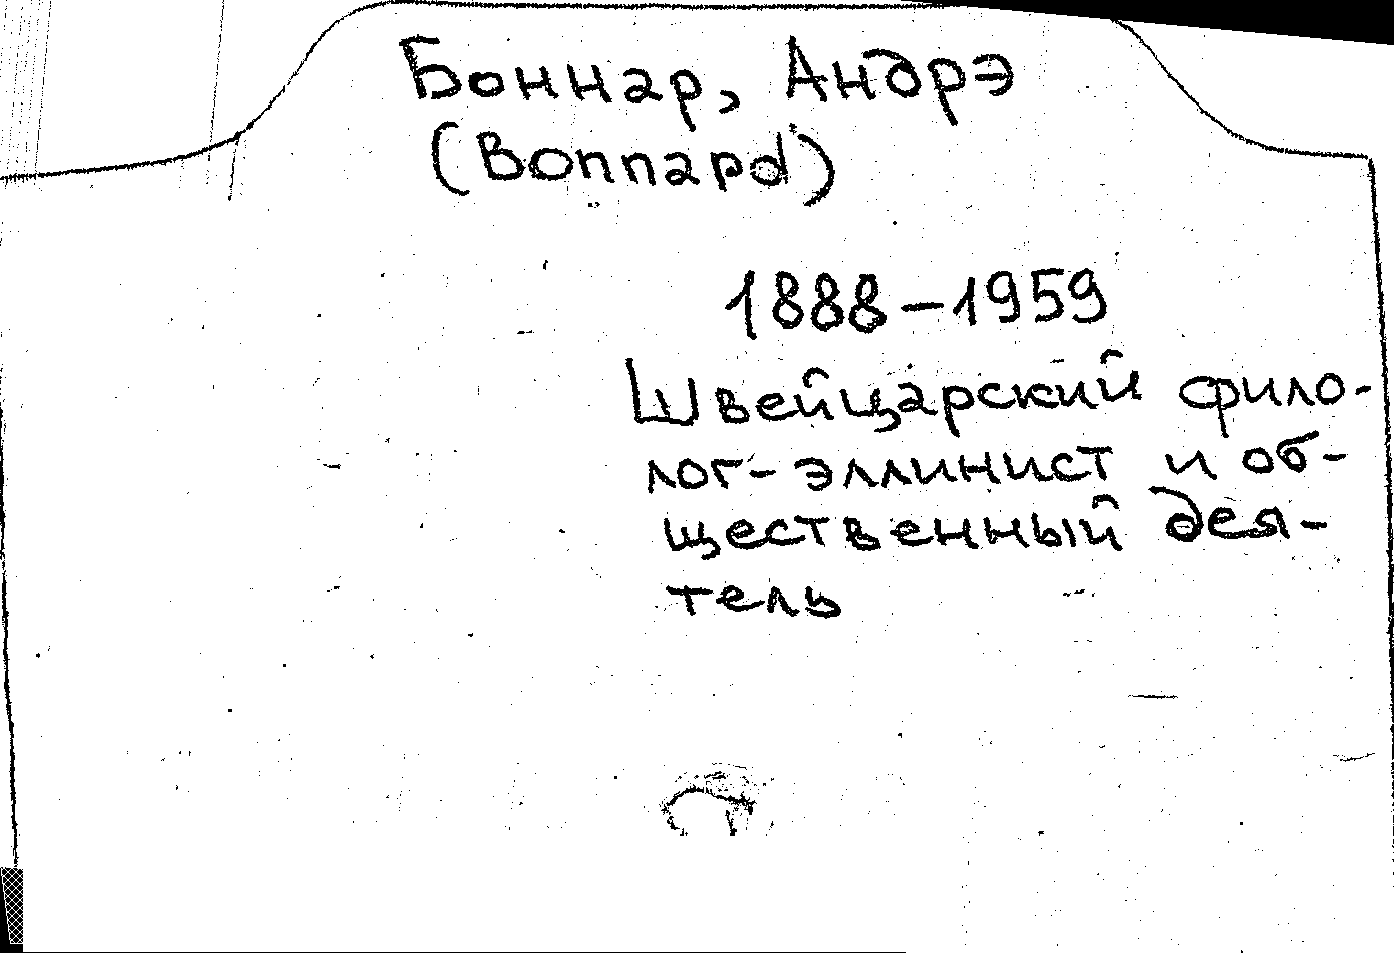 Боннар, Андрэ
(Bonnard)
1888-1959
Швейцарский фило-
лог-эллинист и об-
щественный дея-
тель